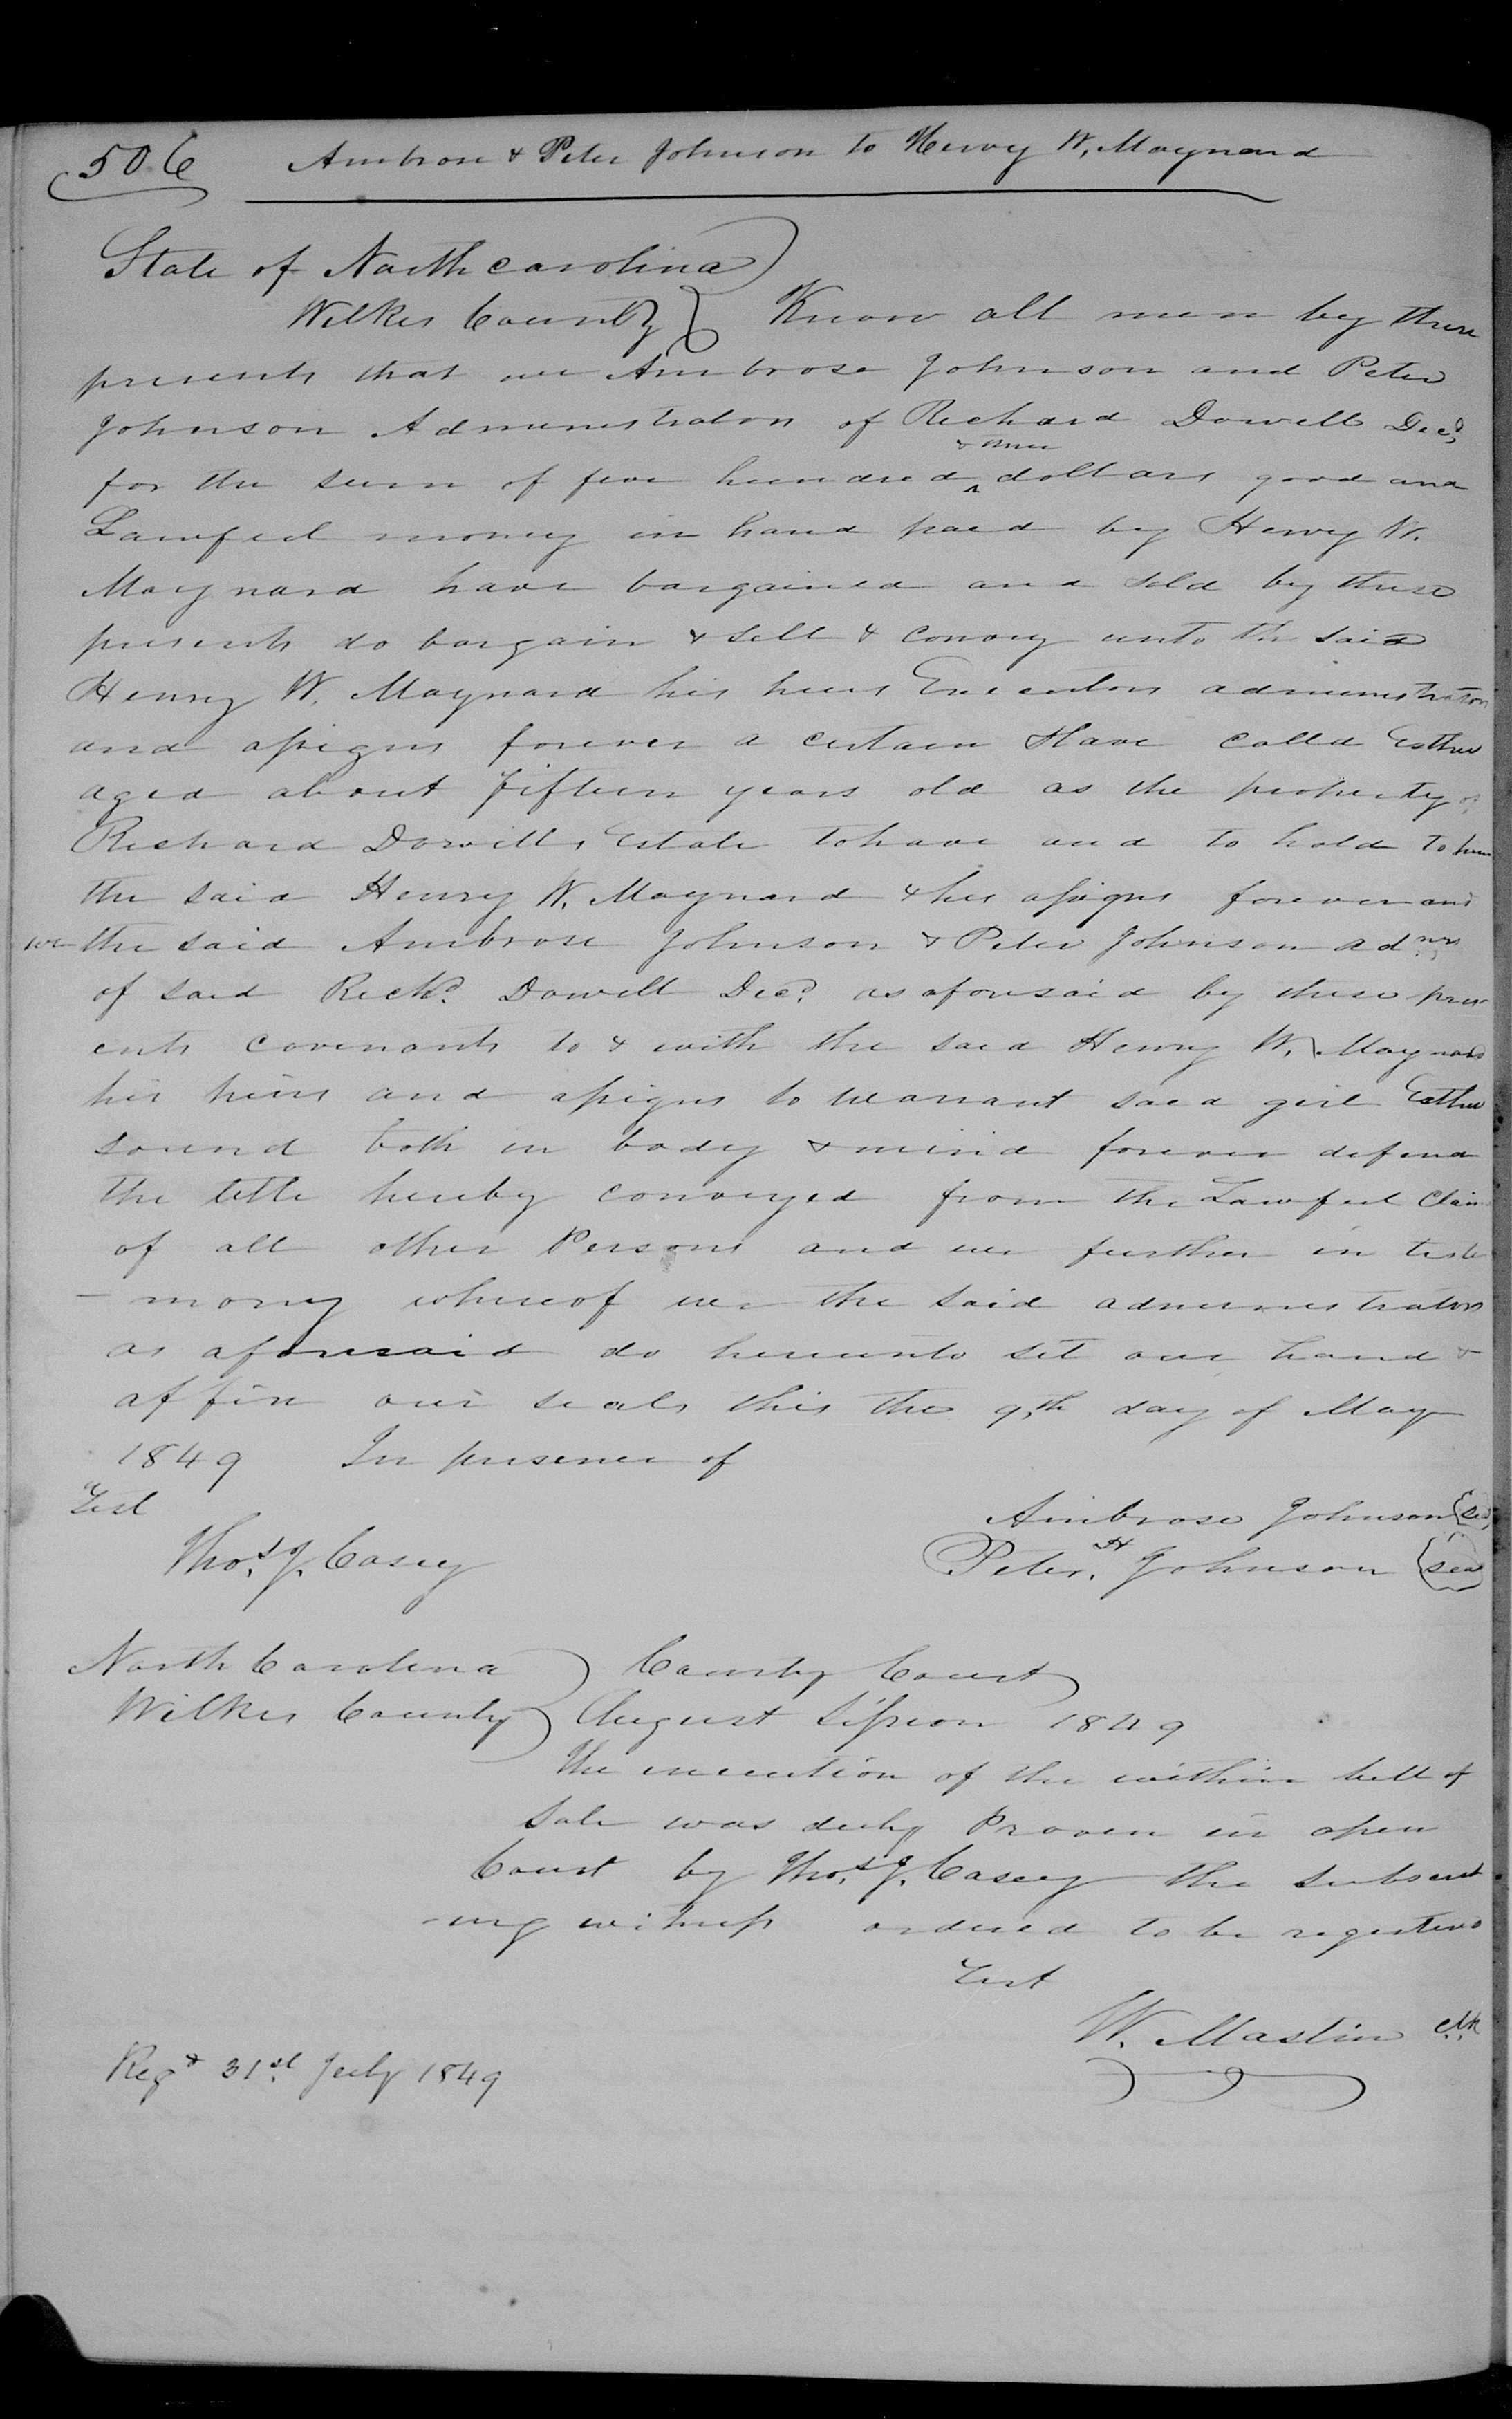 506 Ambrose & Peter Johnson to Henry W. Maynard
State of North carolina
Wilkes County Know all men by these
presents that we Ambrose Johnson and Peter
Johnson Administrators of Richard Dowell Decd,
& one
for the sum of five hundred ^ dollars good and
Lawful money in hand paid by Henry W.
Maynard have bargained and sold by these
presents do bargain & sell & convey unto the said
Henry W. Maynard his heirs Executors administrators
and assigns forever a certain slave calld Esther
aged about fifteen years old as the property of
Richard Dowells Estate to have and to hold to him
the said Henry W. Maynard & his assigns forever and
we the said Ambrose Johnson & Peter Johnson admrs
of said Richd. Dowell Decd. as aforesaid by these pres
ents covenants to & with the said Henry W. Maynard
his heirs and assigns to warrant said girl Esther
sound both in body & mind forever defend
the title hereby conveyed from the Lawful Claim
of all other Persons and we further in testi
- mony whereof we the said administrators
as aforesaid do hereunto set our hand &
affix our seals this the 9th day of May
1849 In presence of
Test
Ambrose Johnson (Seal)
Thos. J. Casey Peter. H Johnson (seal)
North Carolina County Court
Wilkes County August Session 1849
The execution of the within bill of
Sale was duly Proven in open
Court by Thos. J. Casey the subscrib
-ing witness ordered to be registered
Test
W. Mastin Clk
Regd 31st July 1849